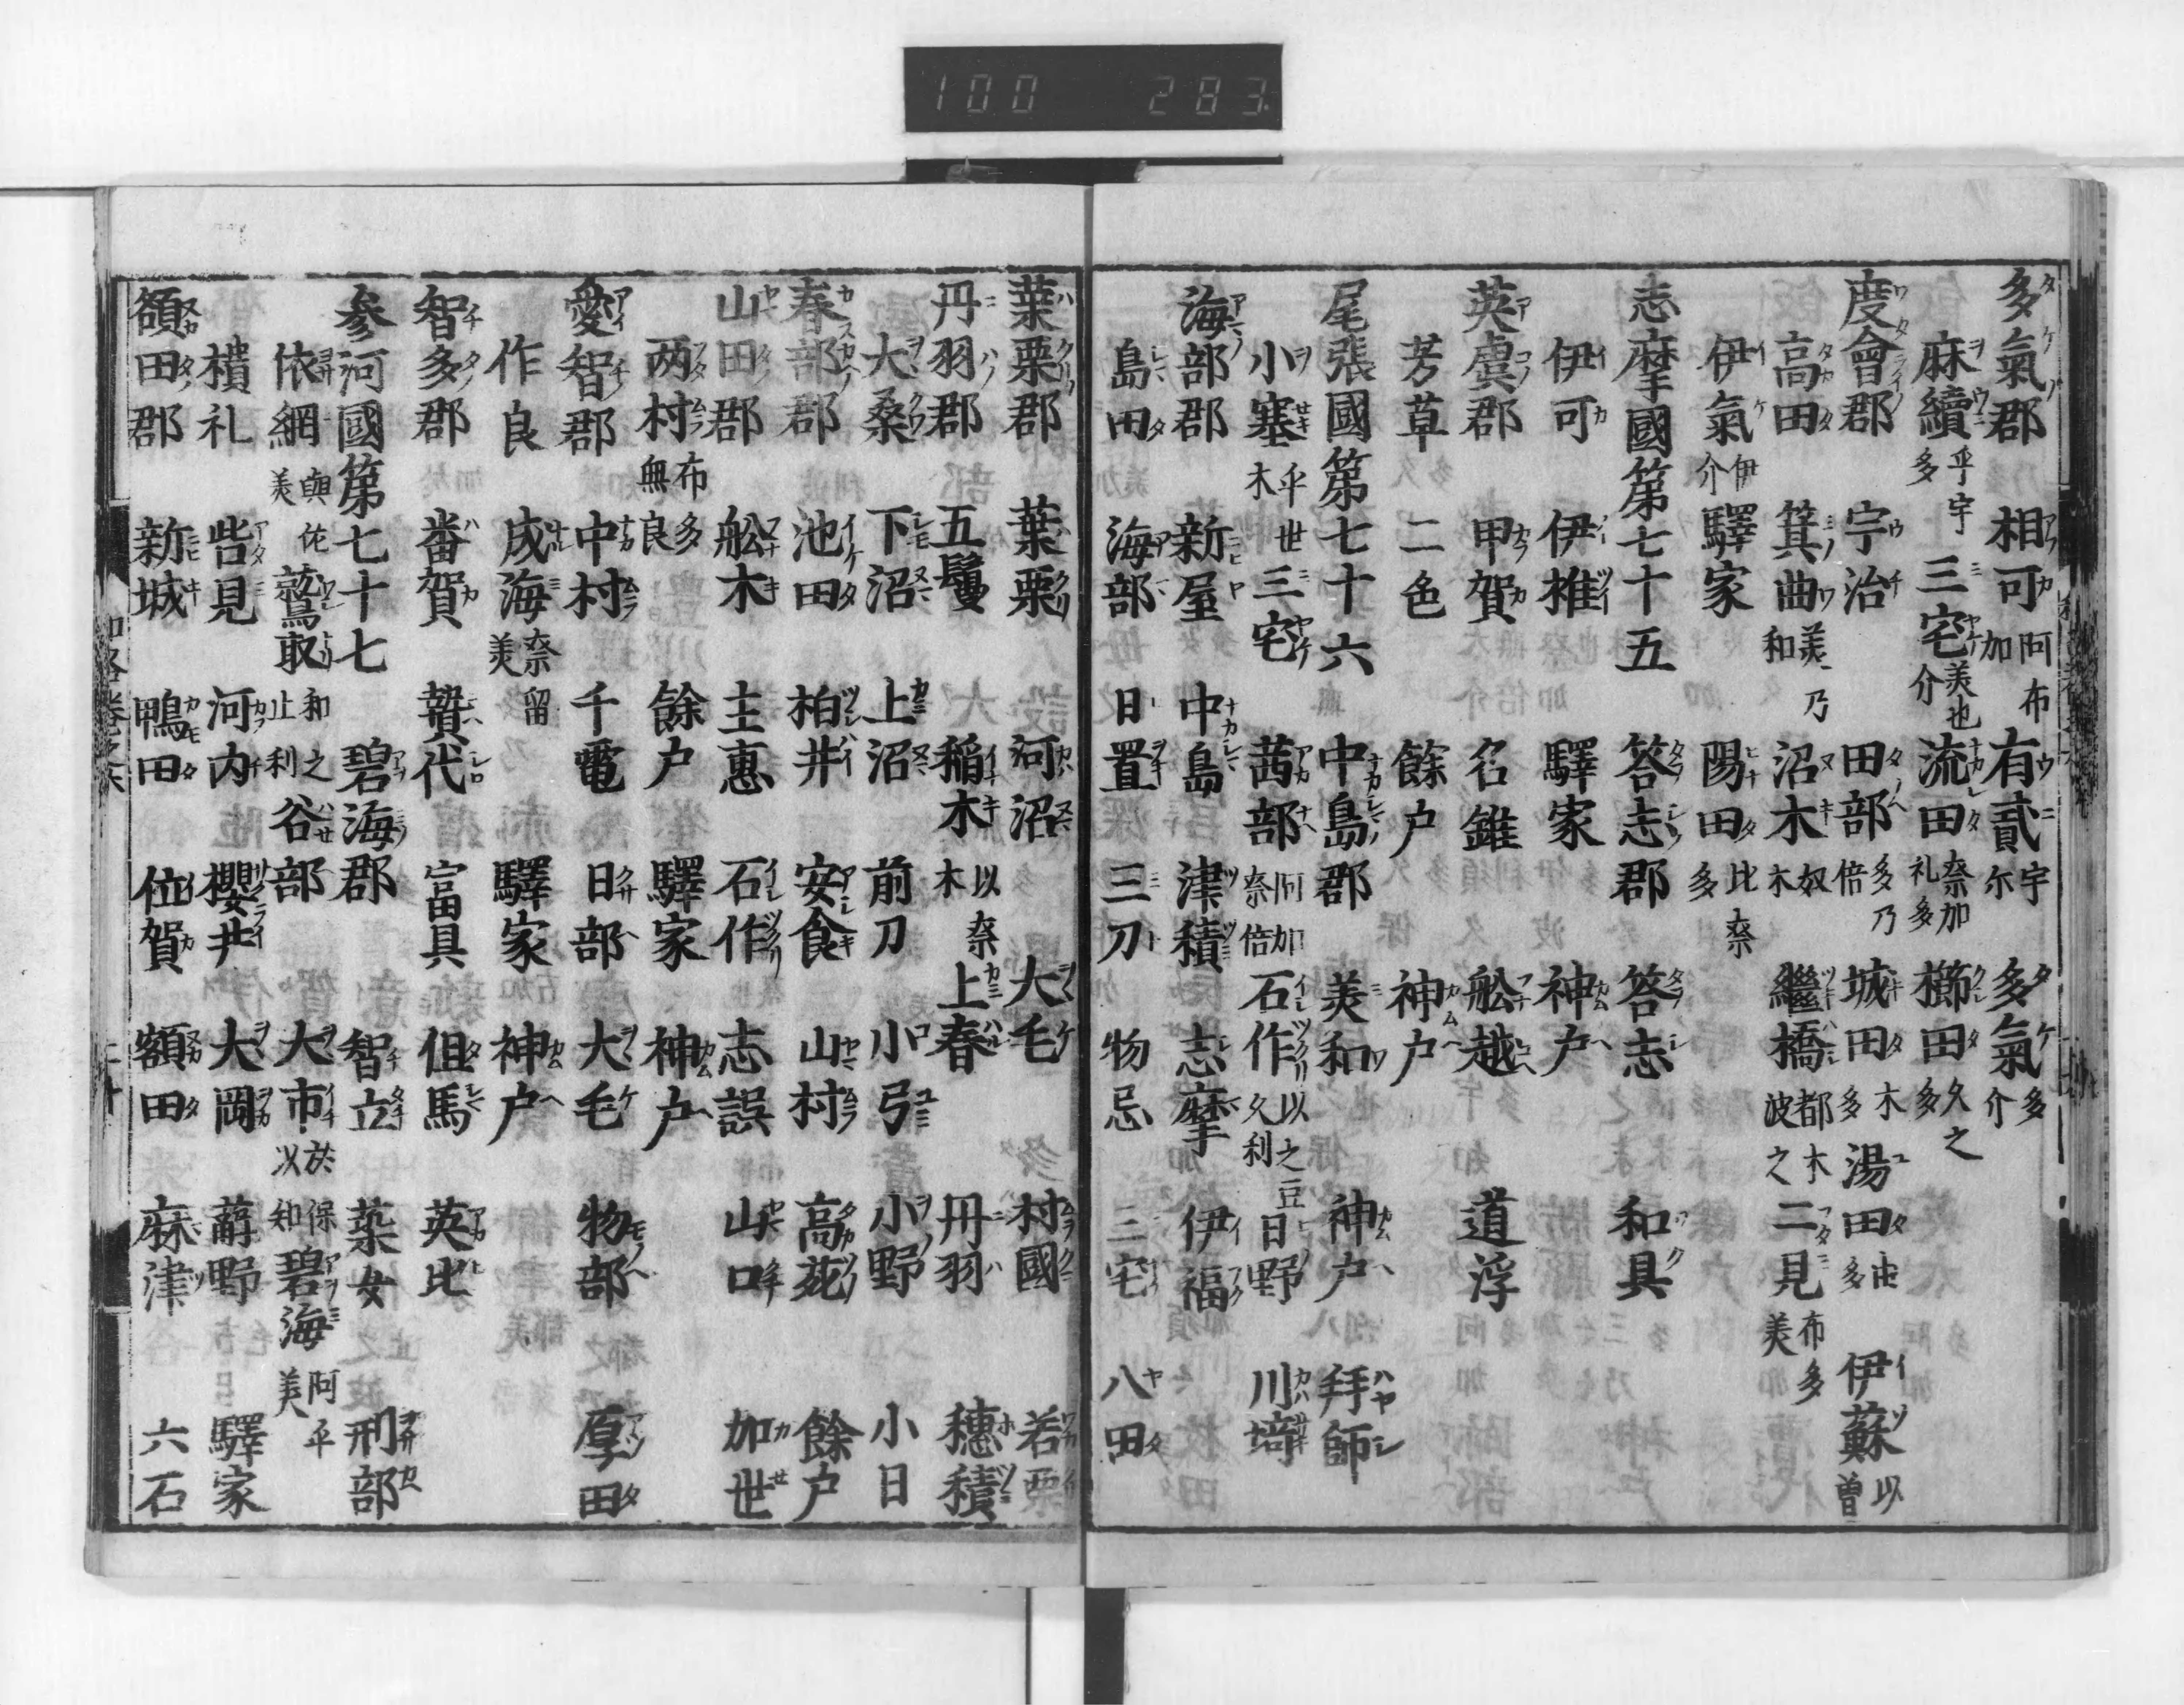 100 283
多氣郡 相可阿布加 有貳宇尓 多氣多介
麻續乎宇多 三宅美也介 流田奈加礼多 櫛田久之多
度會郡 宇治 田部多乃倍 城田木多 湯田由多 伊蘇以曽
高田 箕曲美乃和 沼木奴木 繼橋都木波之 二見布多美
伊氣伊介 驛家 陽田比奈多
志摩國第七十五 答志郡 答志 和具
伊可 伊椎 驛家 神户
英虞郡 甲賀 名錐 舩越 道浮
芳草 二色 餘户 神户
尾張國第七十六 中島郡 美和 神户 拜師
小塞乎世木 三宅 茜部阿加奈倍 石作以之豆久利 日野 川﨑
海部郡 新屋 中島 津積 志摩 伊福
島田 海部 日置 三刀 物忌 三宅 八田
葉栗郡 葉栗 河沼 大毛 村國 若栗
丹羽郡 五鬘 稲木以奈木 上春 丹羽 穗積
大桑 下沼 上沼 前刀 小弓 小野 小日
春部郡 池田 柏井 安食 山村 高苑 餘户
山田郡 舩木 主惠 石作 志誤 山口 加世
两村布多無良 餘户 驛家 神户
愛智郡 中村 千竃 日部 大毛 物部 厚田
作良 成海奈留美 驛家 神户
智多郡 番賀 贄代 富具 但馬 英比
参河國第七十七 碧海郡 智立 菜女 刑部
依網與佐美 鷲取和之止利 谷部 大市於保以知 碧海阿乎美
樻礼 呰見 河内 櫻井 大岡 薢野 驛家
額田郡 新城 鴨田 位賀 額田 麻津 六石